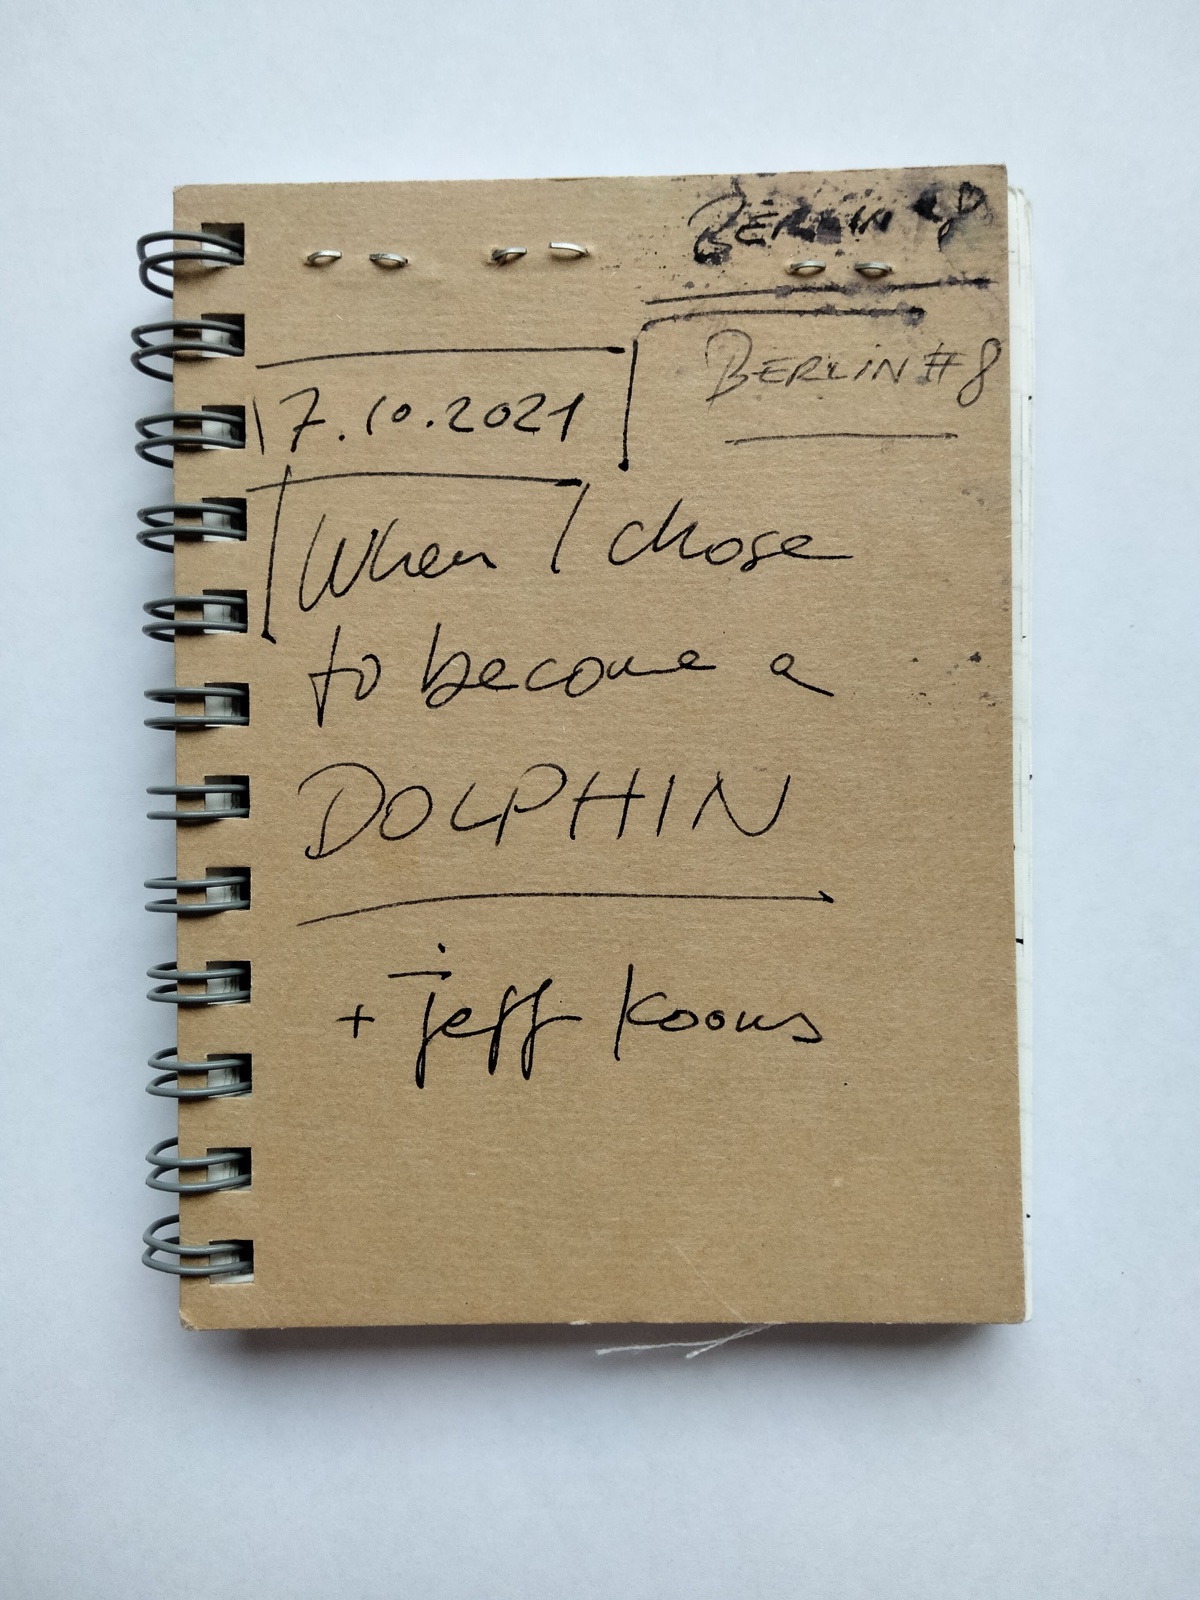 BERLIN #8
BERLIN #8
17.10.2021
When I chose
to become a
DOLPHIN
+ jeff Koons